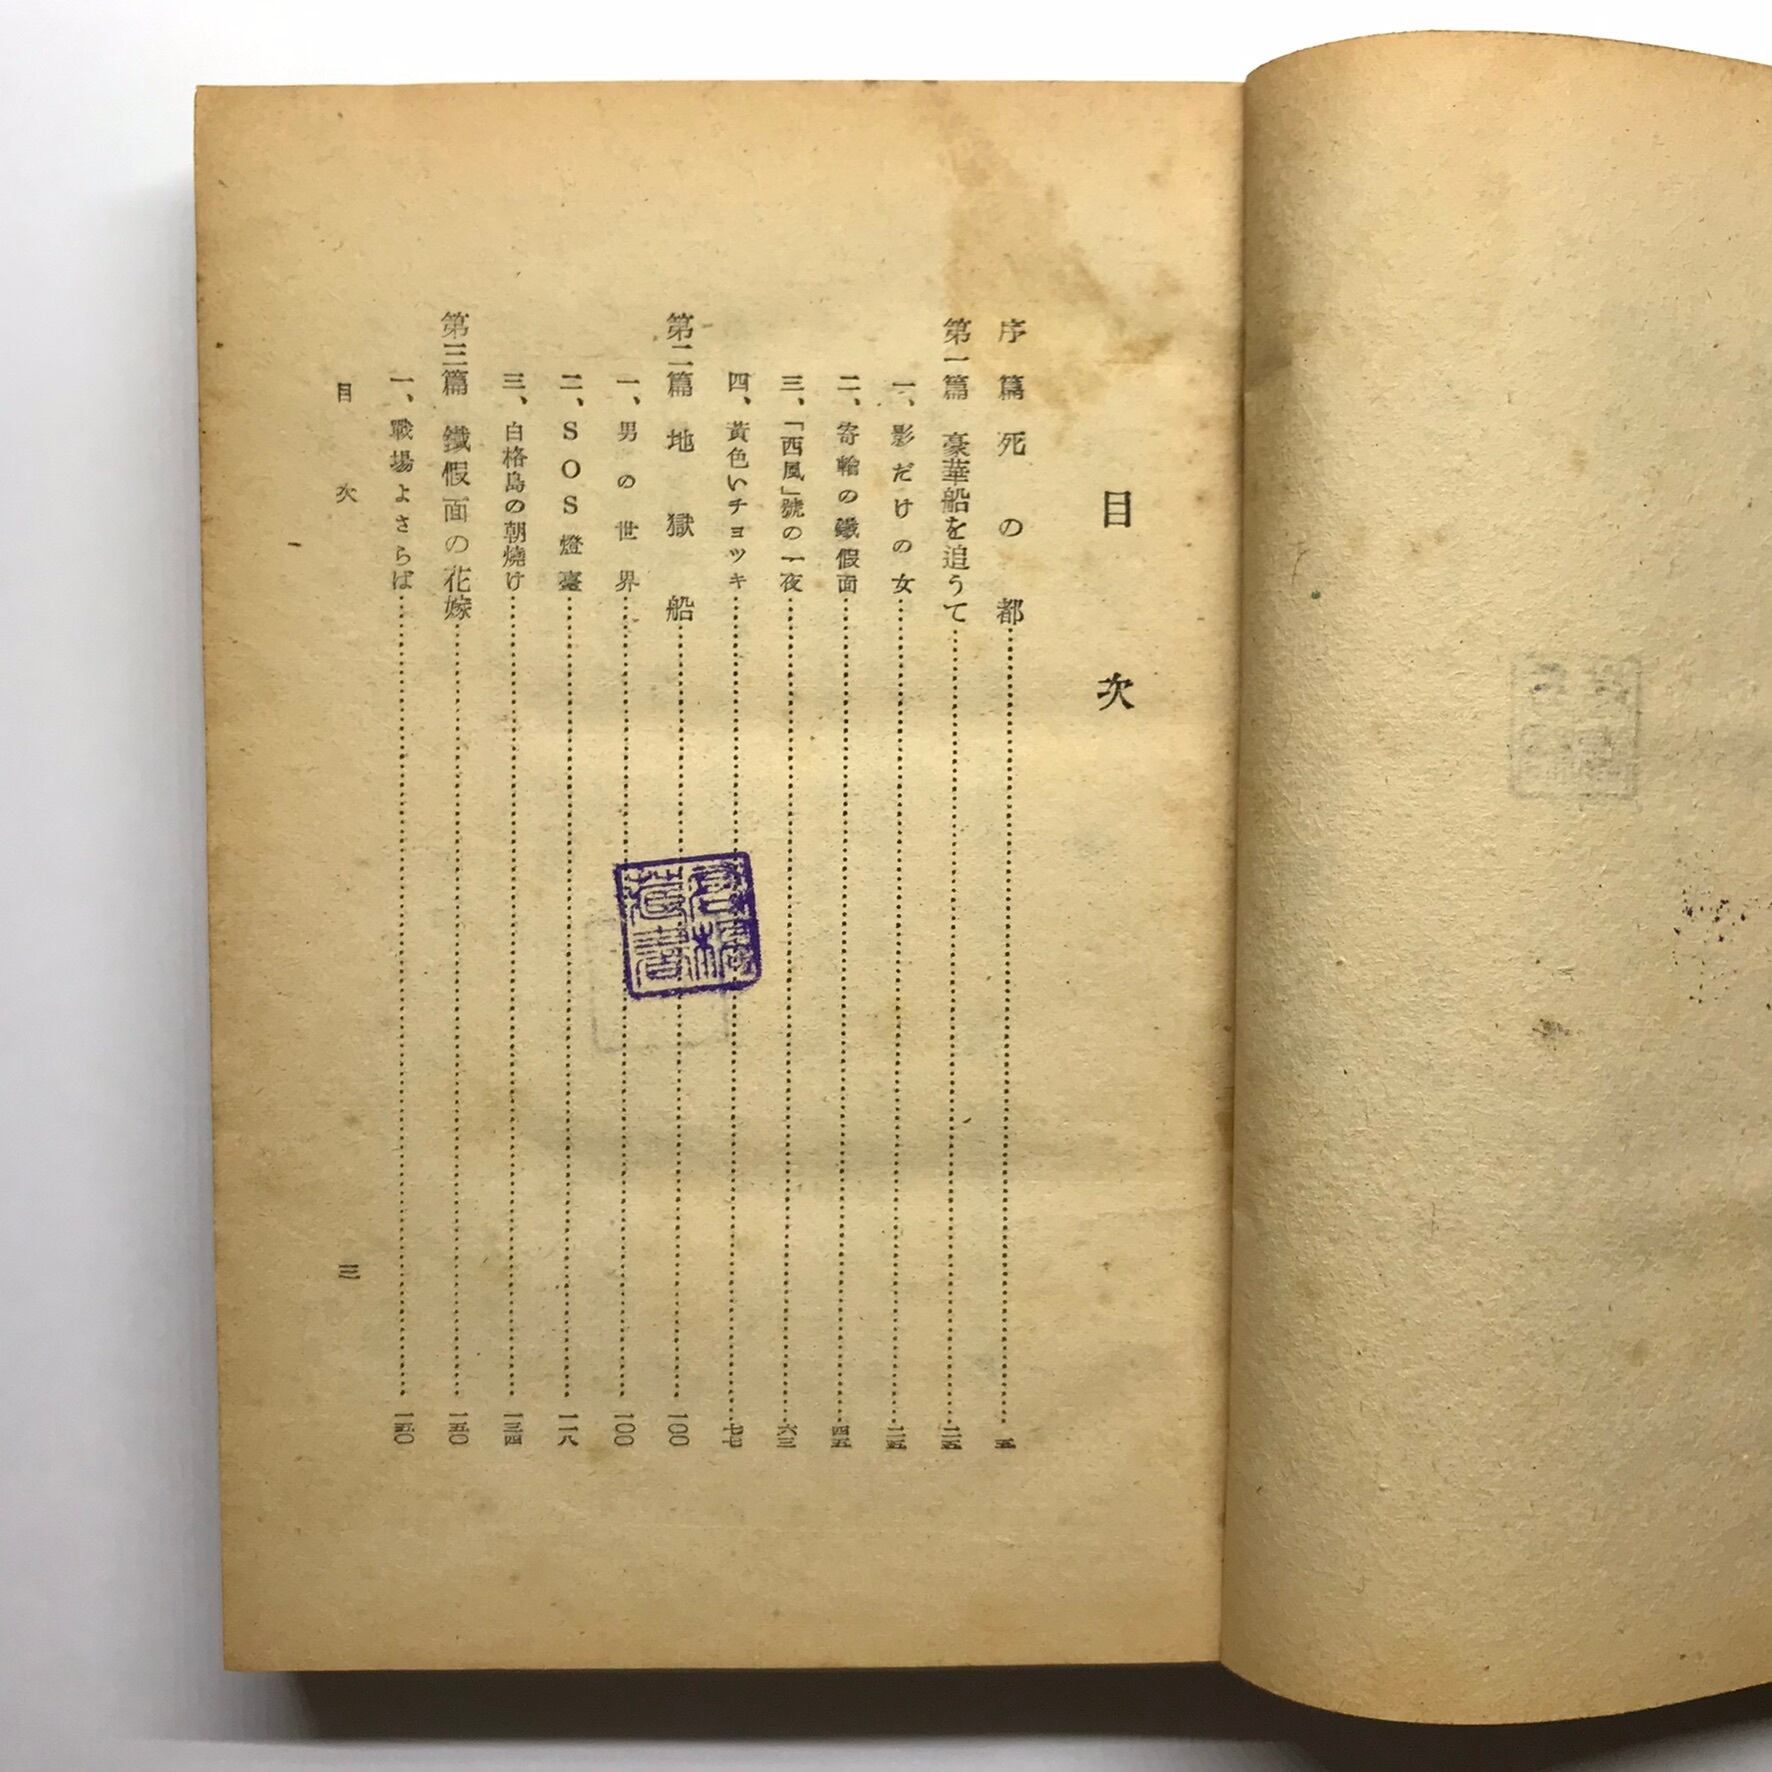 目次
序篇 死の都……五
第一篇 豪華船を追うて……二五
一、影だけの女……二五
二、寄輪の鐵假面……四五
三、「西風」號の一夜……六三
四、黃色いチョツキ……七七
第二篇 地獄船……一〇〇
一、男の世界……一〇〇
二、SOS燈臺……一一八
三、白格島の朝燒け……一三四
第三篇 鐵假面の花嫁……一五〇
一、戰場よさらば……一五〇
目次 三
藏書